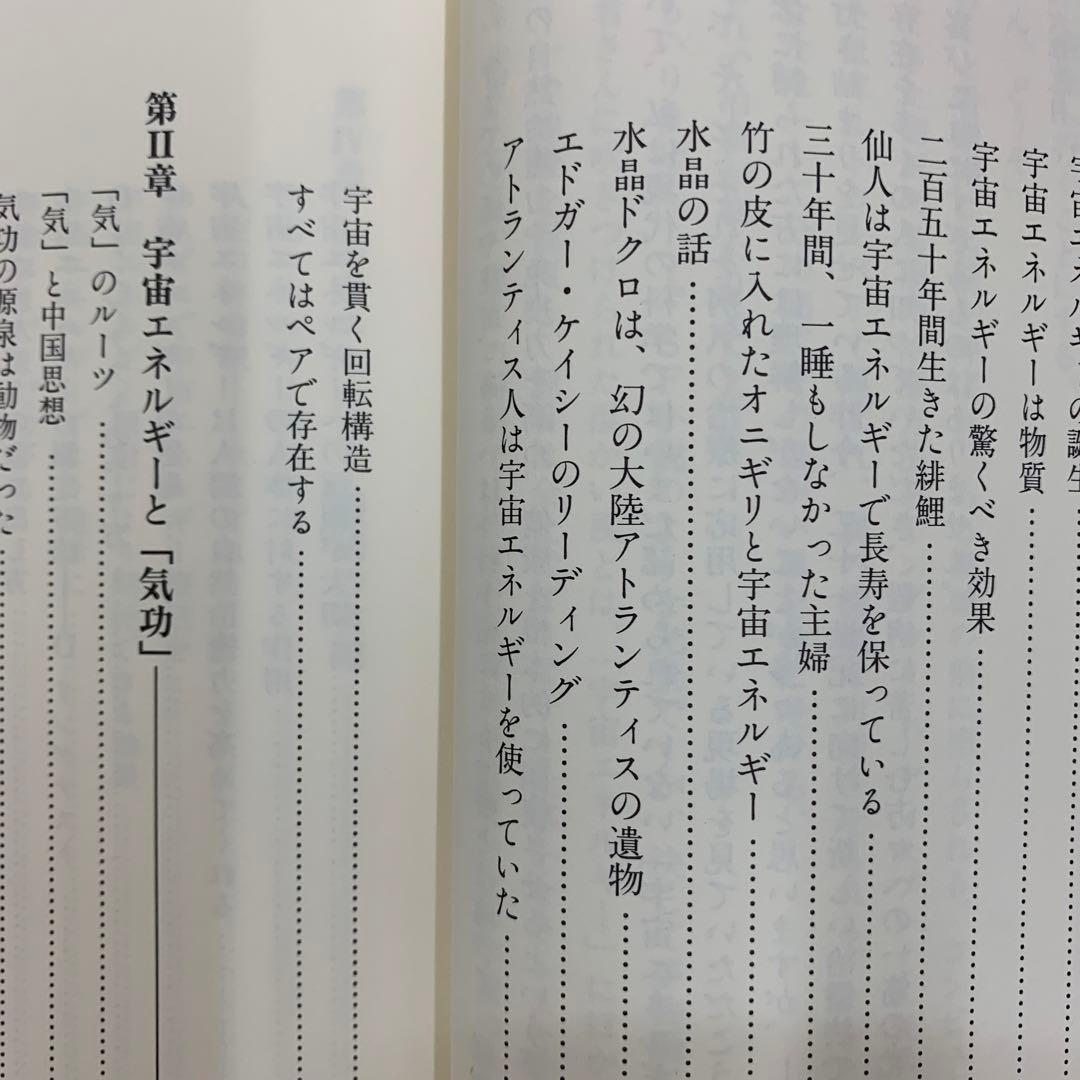 宇宙エネルギーの誕生
宇宙エネルギーは物質
宇宙エネルギーの驚くべき効果
二百五十年間生きた緋鯉
仙人は宇宙エネルギーで長寿を保っている
三十年間、一睡もしなかった主婦
竹の皮に入れたオニギリと宇宙エネルギー
水晶の話
水晶ドクロは、幻の大陸アトランティスの遺物
エドガー・ケイシーのリーディング
アトランティス人は宇宙エネルギーを使っていた
宇宙を貫く回転構造
すべてはペアで存在する
第II章 宇宙エネルギーと「気功」
「気」のルーツ
「気」と中国思想
気功の源泉は動物だった